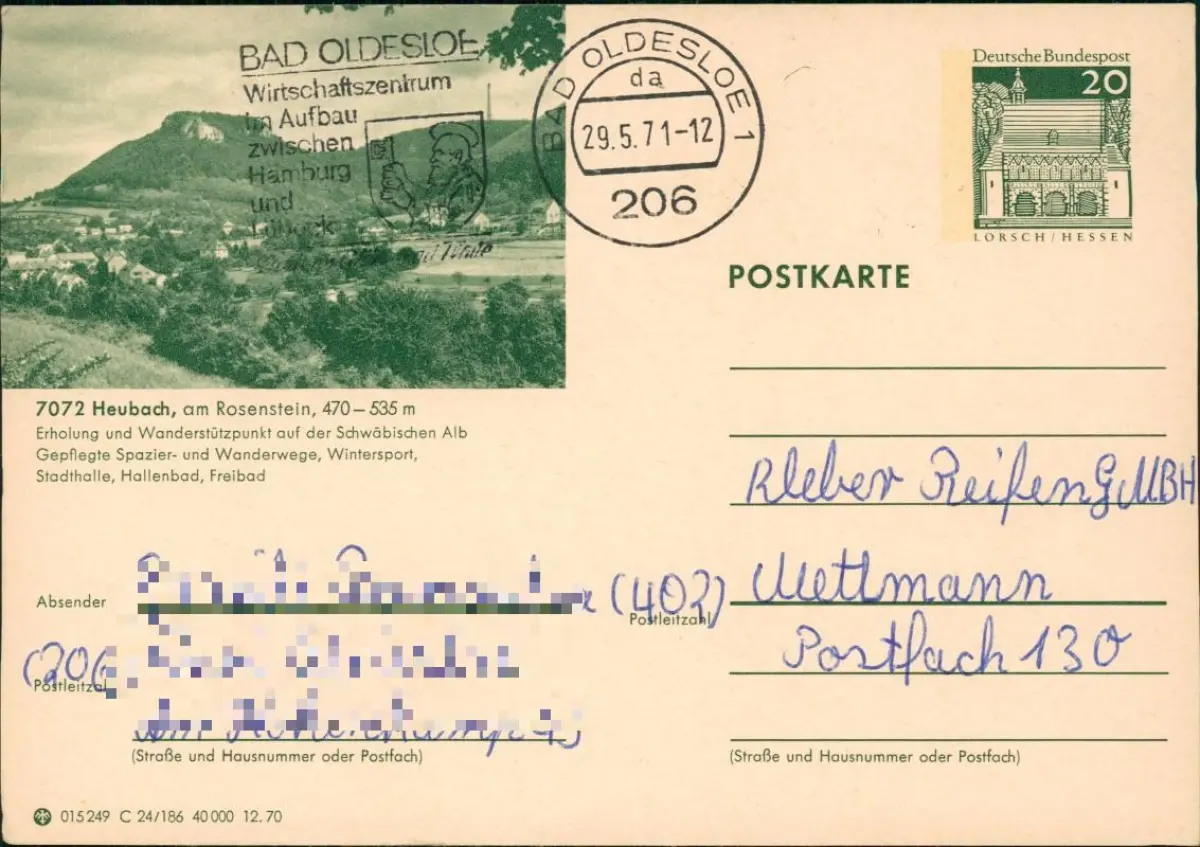 BAD OLDESLOE
Wirtschaftszentrum
im Aufbau
zwischen
Hamburg
und
BAD OLDESLOE 1
da
29.5.71-12
206
Deutsche Bundespost
20
LORSCH/HESSEN
POSTKARTE
7072 Heubach, am Rosenstein, 470 – 535 m
Erholung und Wanderstützpunkt auf der Schwäbischen Alb
Gepflegte Spazier- und Wanderwege, Wintersport,
Stadthalle, Hallenbad, Freibad
Kleber Reifen GMBH
Absender
(402) Mettmann
Postleitzahl
Postfach 130
(206
Postleitzahl
(Straße und Hausnummer oder Postfach)
(Straße und Hausnummer oder Postfach)
015249 C 24/186 40000 12.70